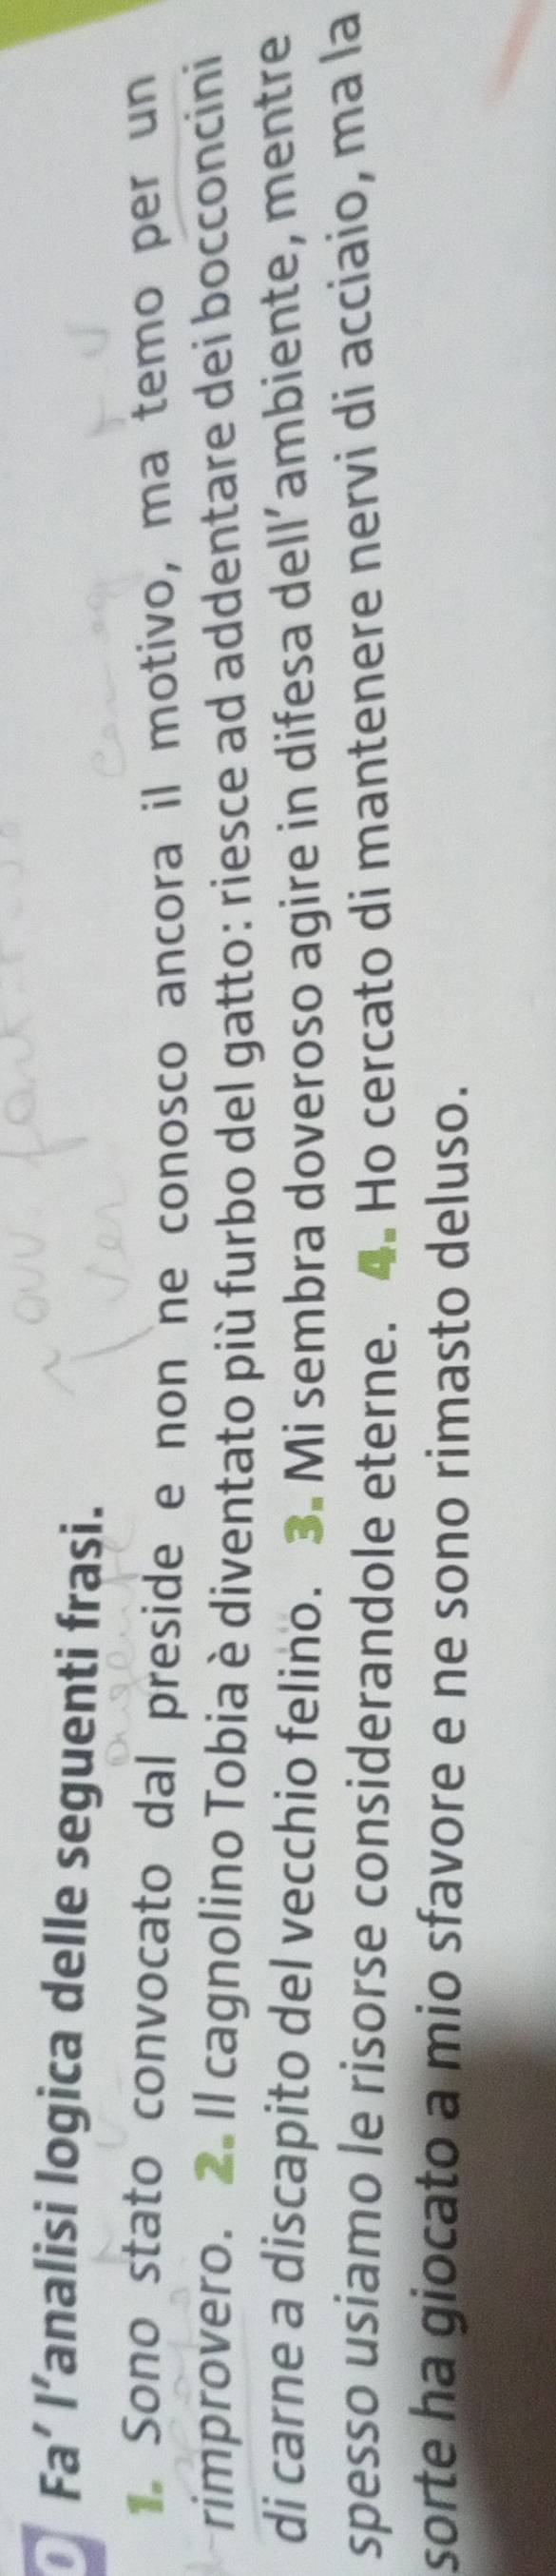 0 Fa' l'analisi logica delle seguenti frasi.
1. Sono stato convocato dal preside e non ne conosco ancora il motivo, ma temo per un
rimprovero. 2. Il cagnolino Tobia è diventato più furbo del gatto: riesce ad addentare dei bocconcini
di carne a discapito del vecchio felino. 3. Mi sembra doveroso agire in difesa dell'ambiente, mentre
spesso usiamo le risorse considerandole eterne. 4. Ho cercato di mantenere nervi di acciaio, ma la
sorte ha giocato a mio sfavore e ne sono rimasto deluso.